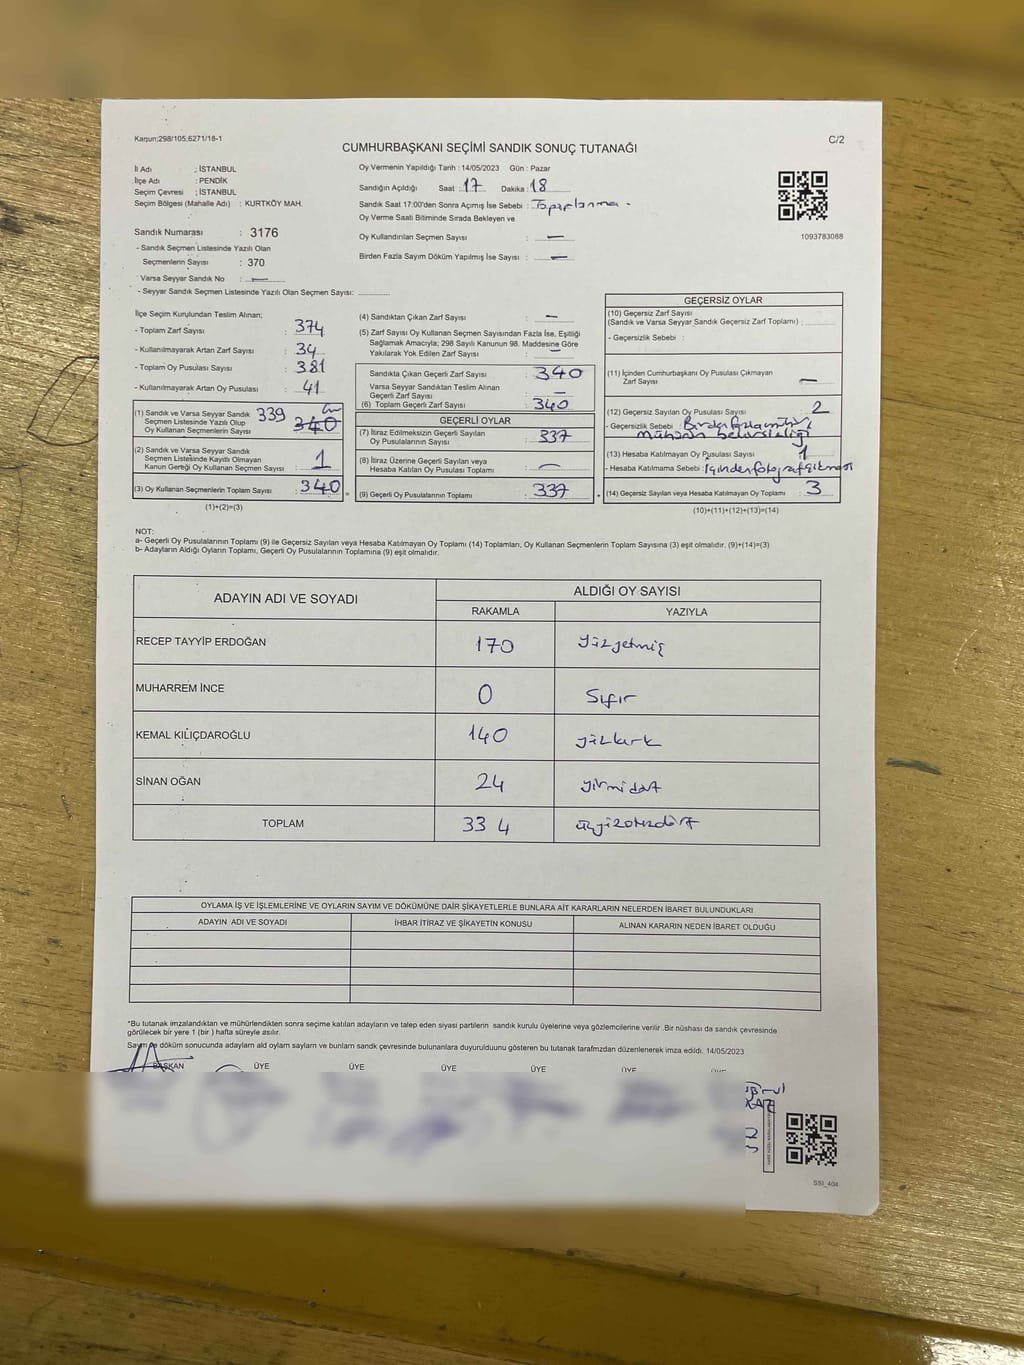 Kanun:298/105;6271/18-1
C/2
CUMHURBAŞKANI SEÇİMİ SANDIK SONUÇ TUTANAĞI
İl Adı : İSTANBUL
İlçe Adı : PENDİK
Seçim Çevresi : İSTANBUL
Seçim Bölgesi (Mahalle Adı) : KURTKÖY MAH.
Sandık Numarası : 3176
- Sandık Seçmen Listesinde Yazılı Olan
Seçmenlerin Sayısı : 370
Varsa Seyyar Sandık No : —
- Seyyar Sandık Seçmen Listesinde Yazılı Olan Seçmen Sayısı:
Oy Vermenin Yapıldığı Tarih : 14/05/2023 Gün : Pazar
Sandığın Açıldığı Saat : 17 Dakika : 18
Sandık Saat 17:00'den Sonra Açımış İse Sebebi : Toparlanma -
Oy Verme Saati Bitiminde Sırada Bekleyen ve
Oy Kullandırılan Seçmen Sayısı : —
Birden Fazla Sayım Döküm Yapılmış İse Sayısı : —
1093783088
İlçe Seçim Kurulundan Teslim Alınan;
- Toplam Zarf Sayısı : 374
- Kullanılmayarak Artan Zarf Sayısı : 34
- Toplam Oy Pusulası Sayısı : 381
- Kullanılmayarak Artan Oy Pusulası : 41
(1) Sandık ve Varsa Seyyar Sandık
Seçmen Listesinde Yazılı Olup
Oy Kullanan Seçmenlerin Sayısı 339 340
(2) Sandık ve Varsa Seyyar Sandık
Seçmen Listesinde Kayıtlı Olmayan
Kanun Gereği Oy Kullanan Seçmen Sayısı : 1
(3) Oy Kullanan Seçmenlerin Toplam Sayısı : 340
(1)+(2)=(3)
(4) Sandıktan Çıkan Zarf Sayısı : —
(5) Zarf Sayısı Oy Kullanan Seçmen Sayısından Fazla İse, Eşitliği
Sağlamak Amacıyla; 298 Sayılı Kanunun 98. Maddesine Göre
Yakılarak Yok Edilen Zarf Sayısı : —
Sandıkta Çıkan Geçerli Zarf Sayısı : 340
Varsa Seyyar Sandıktan Teslim Alınan
Geçerli Zarf Sayısı : —
(6) Toplam Geçerli Zarf Sayısı : 340
GEÇERLİ OYLAR
(7) İtiraz Edilmeksizin Geçerli Sayılan
Oy Pusulalarının Sayısı : 337
(8) İtiraz Üzerine Geçerli Sayılan veya
Hesaba Katılan Oy Pusulası Toplamı : —
(9) Geçerli Oy Pusulalarının Toplamı : 337
GEÇERSİZ OYLAR
(10) Geçersiz Zarf Sayısı
(Sandık ve Varsa Seyyar Sandık Geçersiz Zarf Toplamı) :
- Geçersizlik Sebebi :
(11) İçinden Cumhurbaşkanı Oy Pusulası Çıkmayan
Zarf Sayısı : —
(12) Geçersiz Sayılan Oy Pusulası Sayısı : 2
- Geçersizlik Sebebi : Birden fazla mühür
Mührün belirsizliği
(13) Hesaba Katılmayan Oy Pusulası Sayısı : 1
- Hesaba Katılmama Sebebi : İçinden fotoğraf çıkması
(14) Geçersiz Sayılan veya Hesaba Katılmayan Oy Toplamı : 3
(10)+(11)+(12)+(13)=(14)
NOT:
a- Geçerli Oy Pusulalarının Toplamı (9) ile Geçersiz Sayılan veya Hesaba Katılmayan Oy Toplamı (14) Toplamları, Oy Kullanan Seçmenlerin Toplam Sayısına (3) eşit olmalıdır. (9)+(14)=(3)
b- Adayların Aldığı Oyların Toplamı, Geçerli Oy Pusulalarının Toplamına (9) eşit olmalıdır.
ADAYIN ADI VE SOYADI ALDIĞI OY SAYISI
RAKAMLA YAZIYLA
RECEP TAYYİP ERDOĞAN 170 yüzyetmiş
MUHARREM İNCE 0 Sıfır
KEMAL KILIÇDAROĞLU 140 yüzkırk
SİNAN OĞAN 24 yirmidört
TOPLAM 334 üçyüzotuzdört
OYLAMA İŞ VE İŞLEMLERİNE VE OYLARIN SAYIM VE DÖKÜMÜNE DAİR ŞİKAYETLERLE BUNLARA AİT KARARLARIN NELERDEN İBARET BULUNDUKLARI
ADAYIN ADI VE SOYADI İHBAR İTİRAZ VE ŞİKAYETİN KONUSU ALINAN KARARIN NEDEN İBARET OLDUĞU
*Bu tutanak imzalandıktan ve mühürlendikten sonra seçime katılan adayların ve talep eden siyasi partilerin sandık kurulu üyelerine veya gözlemcilerine verilir .Bir nüshası da sandık çevresinde
görülecek bir yere 1 (bir ) hafta süreyle asılır.
döküm sonucunda adaylarn ald oylarn saylarn ve bunlarn sandk çevresinde bulunanlara duyurulduunu gösteren bu tutanak tarafmzdan düzenlenerek imza edildi. 14/05/2023
BAŞKAN ÜYE ÜYE ÜYE ÜYE ÜYE
SSI_404